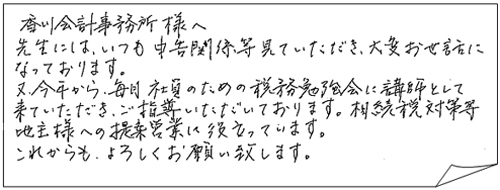 香川会計事務所様へ
先生には、いつも申告関係等見ていただき、大変お世話に
なっております。
又、今年から、毎月社員のための税務勉強会に講師として
来ていただき、ご指導いただいております。相続税対策等
地主様への提案営業に役立っています。
これからも、よろしくお願い致します。